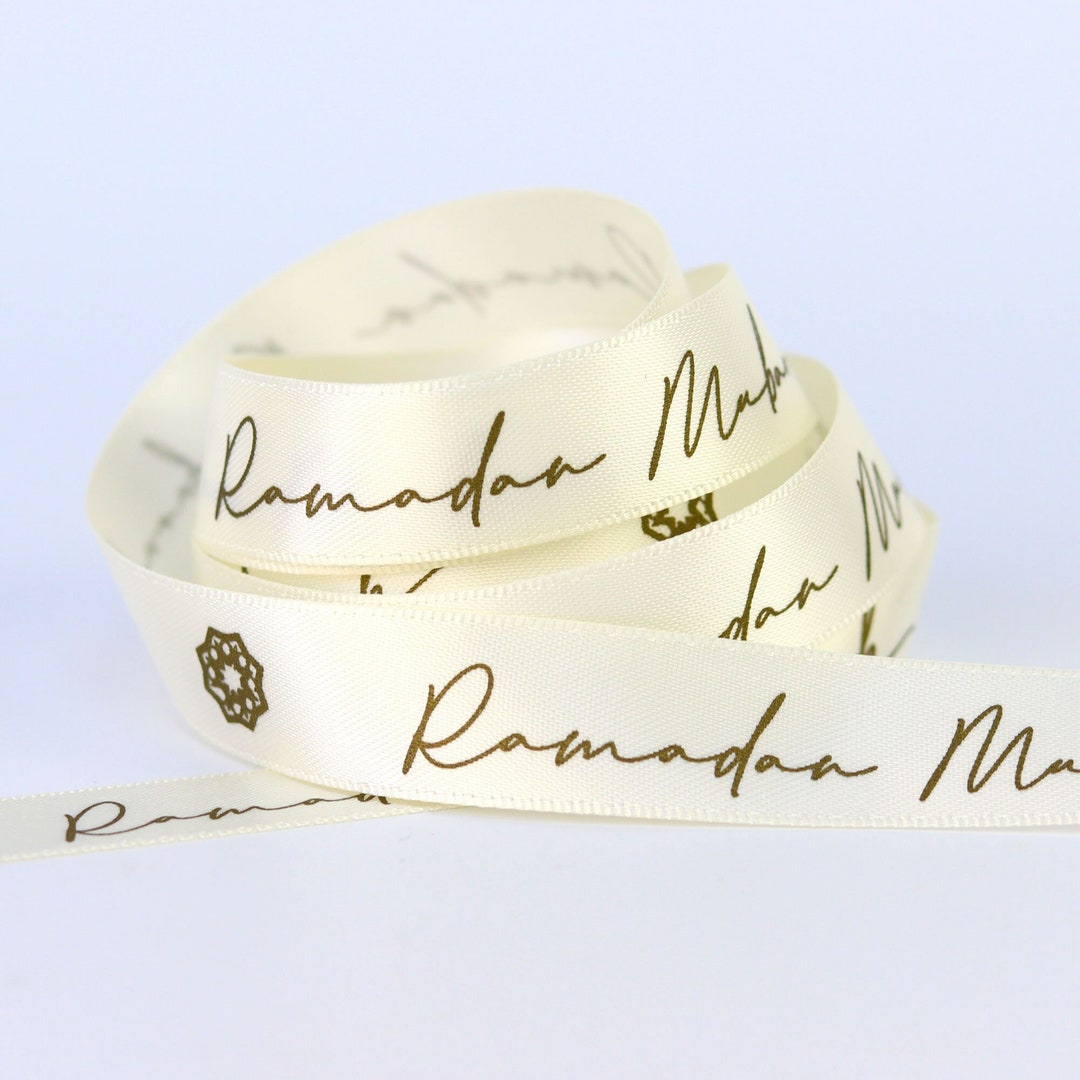 Ramadan Muba
dan M
Ramadan Mu
Ramad